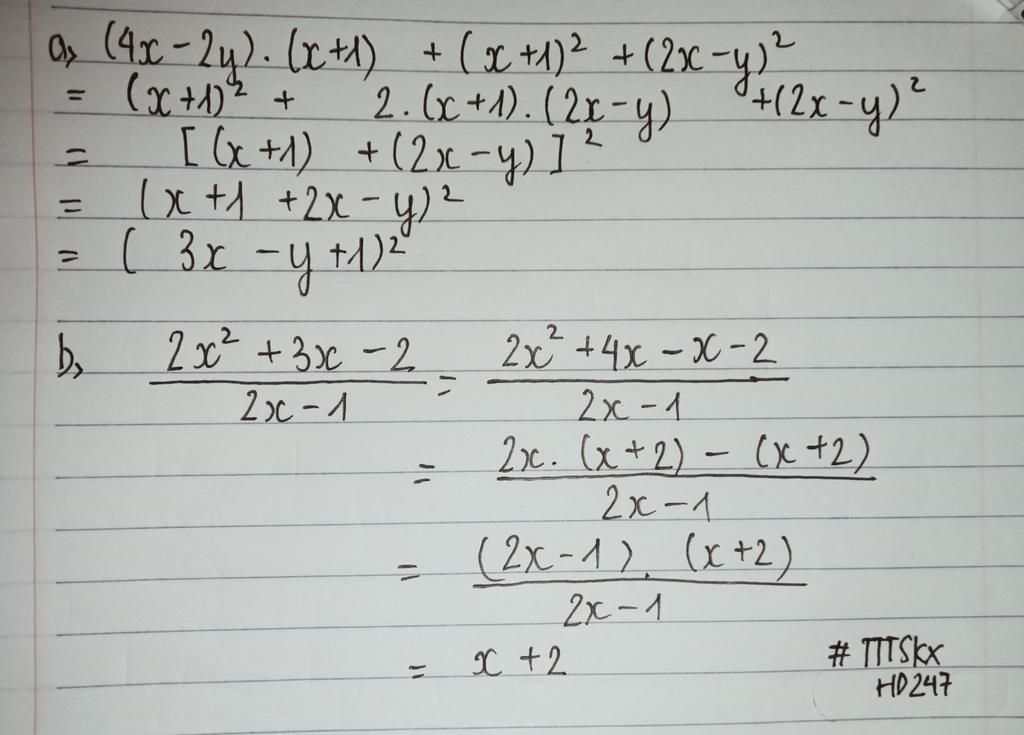 a, (4x - 2y) . (x+1) + (x+1)² + (2x-y)²
= (x+1)² + 2.(x+1).(2x-y) +(2x-y)²
= [(x+1) +(2x-y)]²
= (x+1 +2x-y)²
= ( 3x -y +1)²
b, (2x² +3x -2)/(2x-1) = (2x² +4x -x -2)/(2x-1)
= (2x. (x+2) - (x+2))/(2x-1)
= ((2x-1). (x+2))/(2x-1)
= x +2
# TTTSkx
HD247